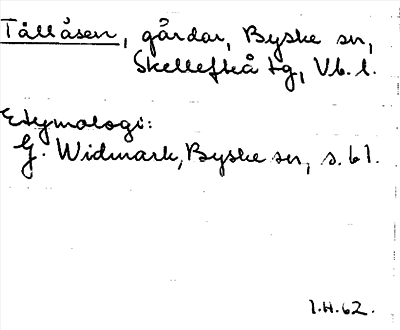 Tållåsen, gårdar, Byske sn,
Skellefteå tg, Vb. l.
Etymologi:
G. Widmark, Byske sn, s. 61.
1.H.62.